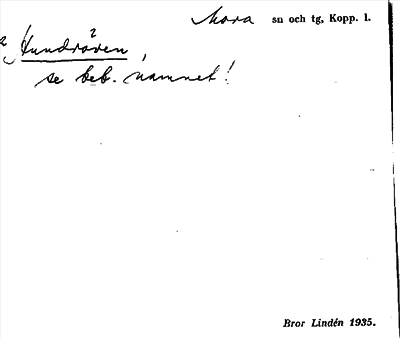 Mora sn och tg, Kopp. l.
Hundröven,
se beb. namnet!
Bror Lindén 1935.